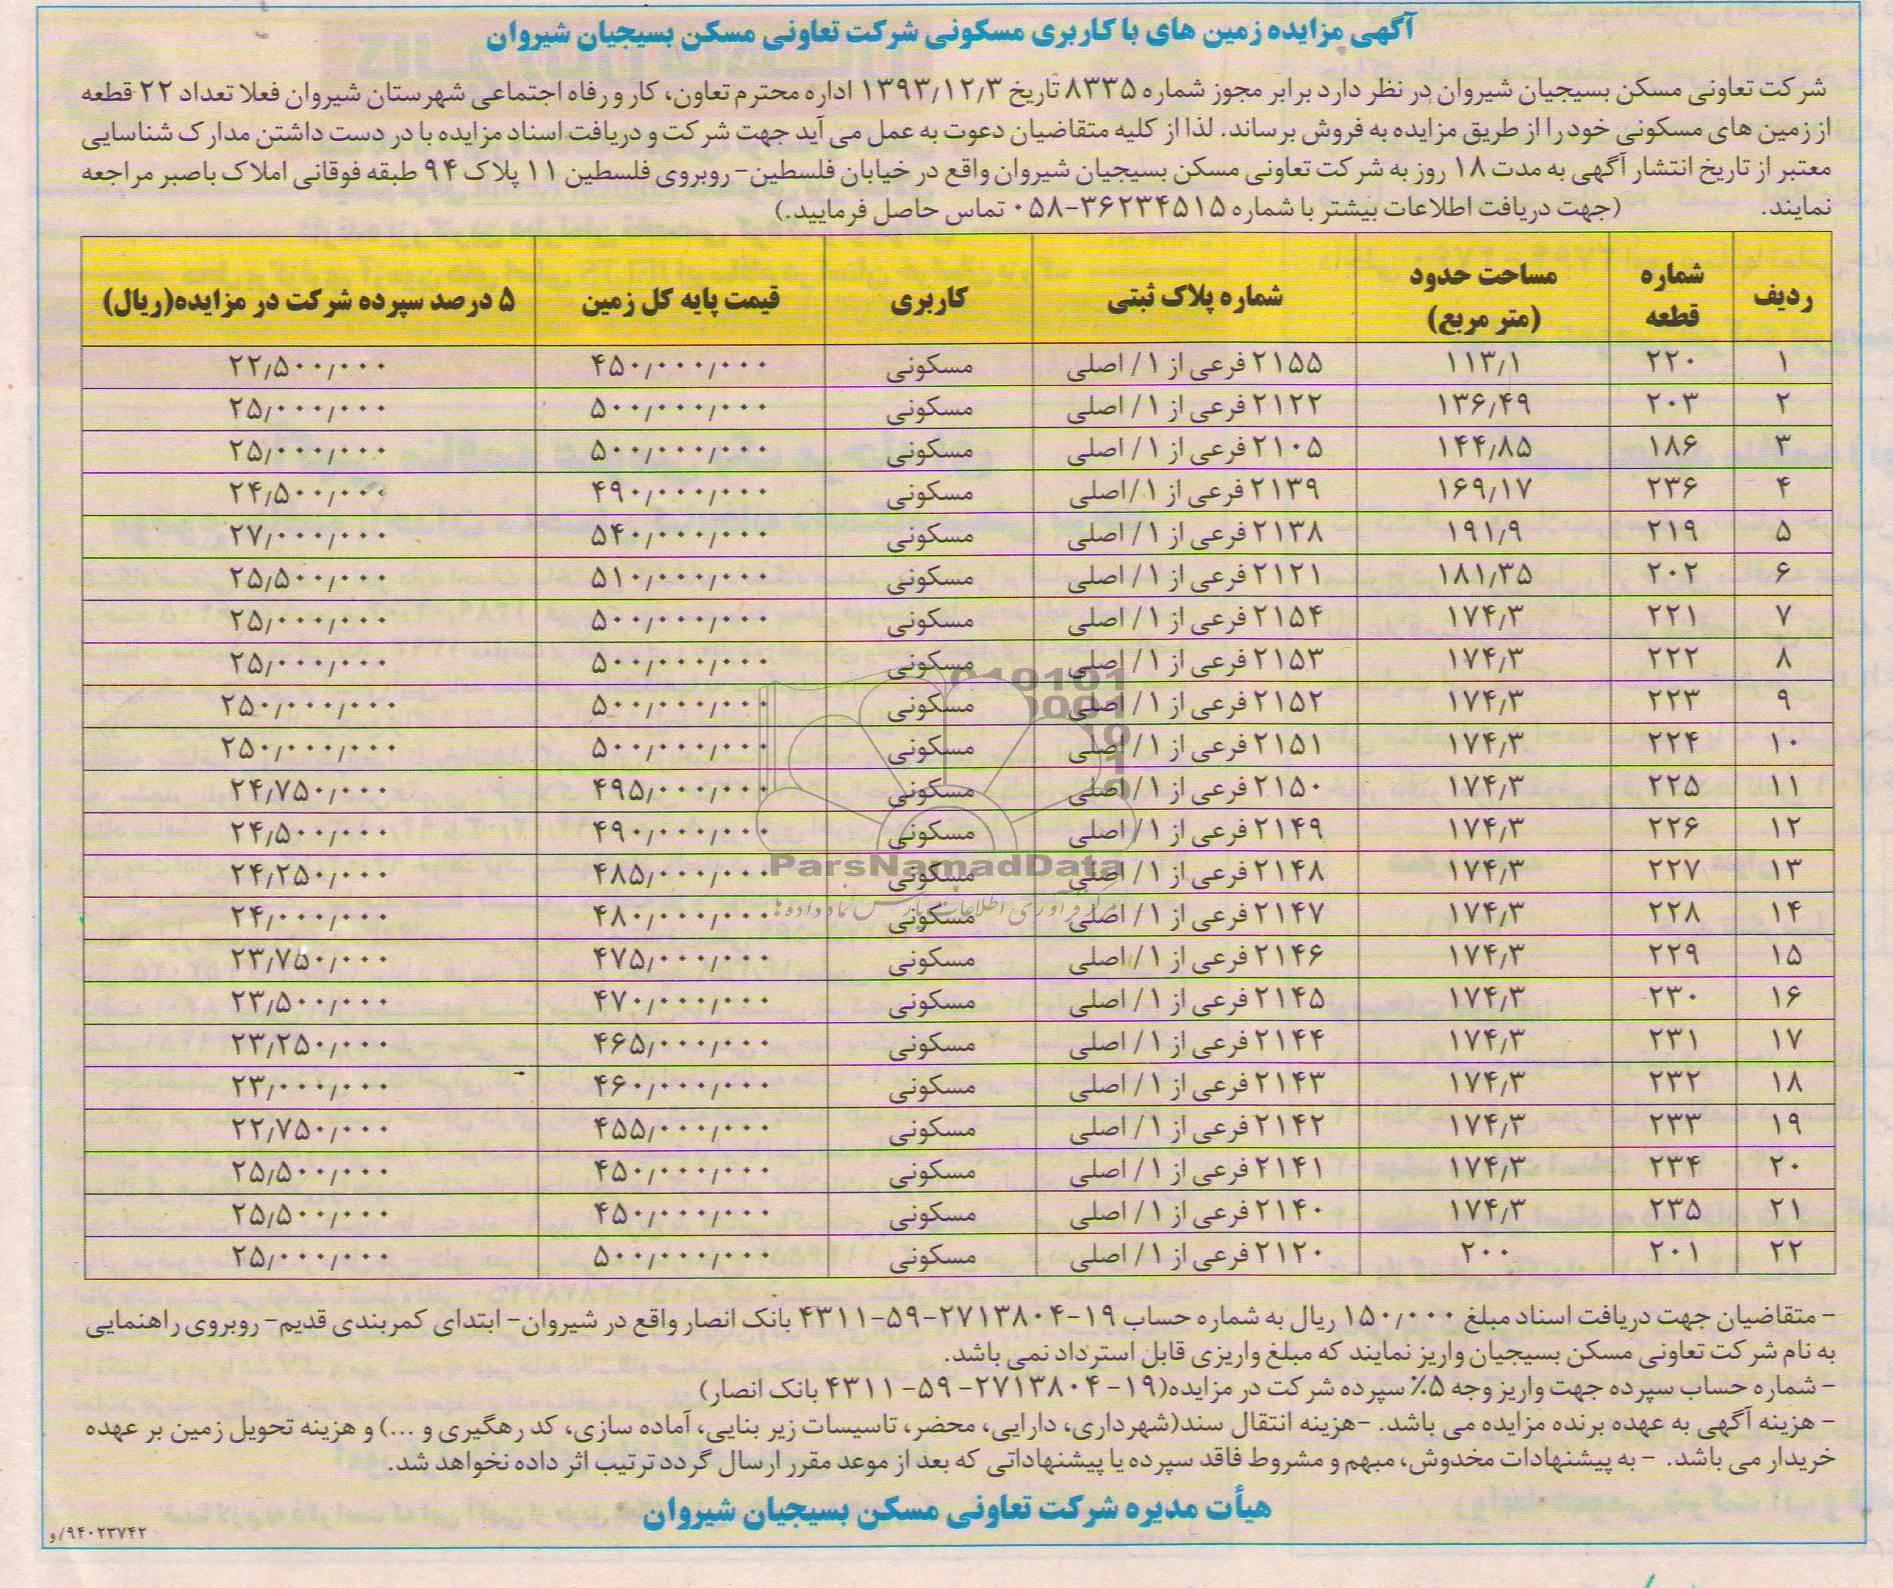 آگهی مزایده زمین های با کاربری مسکونی شرکت تعاونی مسکن بسیجیان شیروان
شرکت تعاونی مسکن بسیجیان شیروان در نظر دارد برابر مجوز شماره ۸۳۳۵ تاریخ ۱۳۹۳/۱۲/۳ اداره محترم تعاون، کار و رفاه اجتماعی شهرستان شیروان فعلا تعداد ۲۲ قطعه
از زمین های مسکونی خود را از طریق مزایده به فروش برساند. لذا از کلیه متقاضیان دعوت به عمل می آید جهت شرکت و دریافت اسناد مزایده با در دست داشتن مدارک شناسایی
معتبر از تاریخ انتشار آگهی به مدت ۱۸ روز به شرکت تعاونی مسکن بسیجیان شیروان واقع در خیابان فلسطین- روبروی فلسطین ۱۱ پلاک ۹۴ طبقه فوقانی املاک باصبر مراجعه
نمایند. (جهت دریافت اطلاعات بیشتر با شماره ۳۶۲۳۴۵۱۵-۰۵۸ تماس حاصل فرمایید.)
ردیف شماره قطعه مساحت حدود (متر مربع) شماره پلاک ثبتی کاربری قیمت پایه کل زمین ۵ درصد سپرده شرکت در مزایده(ریال)
۱ ۲۲۰ ۱۱۳/۱ ۲۱۵۵ فرعی از ۱/ اصلی مسکونی ۴۵۰/۰۰۰/۰۰۰ ۲۲/۵۰۰/۰۰۰
۲ ۲۰۳ ۱۳۶/۴۹ ۲۱۲۲ فرعی از ۱/ اصلی مسکونی ۵۰۰/۰۰۰/۰۰۰ ۲۵/۰۰۰/۰۰۰
۳ ۱۸۶ ۱۴۴/۸۵ ۲۱۰۵ فرعی از ۱/ اصلی مسکونی ۵۰۰/۰۰۰/۰۰۰ ۲۵/۰۰۰/۰۰۰
۴ ۲۳۶ ۱۶۹/۱۷ ۲۱۳۹ فرعی از ۱/اصلی مسکونی ۴۹۰/۰۰۰/۰۰۰ ۲۴/۵۰۰/۰۰۰
۵ ۲۱۹ ۱۹۱/۹ ۲۱۳۸ فرعی از ۱/ اصلی مسکونی ۵۴۰/۰۰۰/۰۰۰ ۲۷/۰۰۰/۰۰۰
۶ ۲۰۲ ۱۸۱/۳۵ ۲۱۲۱ فرعی از ۱/ اصلی مسکونی ۵۱۰/۰۰۰/۰۰۰ ۲۵/۵۰۰/۰۰۰
۷ ۲۲۱ ۱۷۴/۳ ۲۱۵۴ فرعی از ۱/ اصلی مسکونی ۵۰۰/۰۰۰/۰۰۰ ۲۵/۰۰۰/۰۰۰
۸ ۲۲۲ ۱۷۴/۳ ۲۱۵۳ فرعی از ۱/ اصلی مسکونی ۵۰۰/۰۰۰/۰۰۰ ۲۵/۰۰۰/۰۰۰
۹ ۲۲۳ ۱۷۴/۳ ۲۱۵۲ فرعی از ۱/ اصلی مسکونی ۵۰۰/۰۰۰/۰۰۰ ۲۵۰/۰۰۰/۰۰۰
۱۰ ۲۲۴ ۱۷۴/۳ ۲۱۵۱ فرعی از ۱/ اصلی مسکونی ۵۰۰/۰۰۰/۰۰۰ ۲۵۰/۰۰۰/۰۰۰
۱۱ ۲۲۵ ۱۷۴/۳ ۲۱۵۰ فرعی از ۱/ اصلی مسکونی ۴۹۵/۰۰۰/۰۰۰ ۲۴/۷۵۰/۰۰۰
۱۲ ۲۲۶ ۱۷۴/۳ ۲۱۴۹ فرعی از ۱/ اصلی مسکونی ۴۹۰/۰۰۰/۰۰۰ ۲۴/۵۰۰/۰۰۰
۱۳ ۲۲۷ ۱۷۴/۳ ۲۱۴۸ فرعی از ۱/ اصلی مسکونی ۴۸۵/۰۰۰/۰۰۰ ۲۴/۲۵۰/۰۰۰
۱۴ ۲۲۸ ۱۷۴/۳ ۲۱۴۷ فرعی از ۱/ اصلی مسکونی ۴۸۰/۰۰۰/۰۰۰ ۲۴/۰۰۰/۰۰۰
۱۵ ۲۲۹ ۱۷۴/۳ ۲۱۴۶ فرعی از ۱/ اصلی مسکونی ۴۷۵/۰۰۰/۰۰۰ ۲۳/۷۵۰/۰۰۰
۱۶ ۲۳۰ ۱۷۴/۳ ۲۱۴۵ فرعی از ۱/ اصلی مسکونی ۴۷۰/۰۰۰/۰۰۰ ۲۳/۵۰۰/۰۰۰
۱۷ ۲۳۱ ۱۷۴/۳ ۲۱۴۴ فرعی از ۱/ اصلی مسکونی ۴۶۵/۰۰۰/۰۰۰ ۲۳/۲۵۰/۰۰۰
۱۸ ۲۳۲ ۱۷۴/۳ ۲۱۴۳ فرعی از ۱/ اصلی مسکونی ۴۶۰/۰۰۰/۰۰۰ ۲۳/۰۰۰/۰۰۰
۱۹ ۲۳۳ ۱۷۴/۳ ۲۱۴۲ فرعی از ۱/ اصلی مسکونی ۴۵۵/۰۰۰/۰۰۰ ۲۲/۷۵۰/۰۰۰
۲۰ ۲۳۴ ۱۷۴/۳ ۲۱۴۱ فرعی از ۱/ اصلی مسکونی ۴۵۰/۰۰۰/۰۰۰ ۲۵/۵۰۰/۰۰۰
۲۱ ۲۳۵ ۱۷۴/۳ ۲۱۴۰ فرعی از ۱/ اصلی مسکونی ۴۵۰/۰۰۰/۰۰۰ ۲۵/۵۰۰/۰۰۰
۲۲ ۲۰۱ ۲۰۰ ۲۱۲۰ فرعی از ۱/ اصلی مسکونی ۵۰۰/۰۰۰/۰۰۰ ۲۵/۰۰۰/۰۰۰
ParsNamadData
- متقاضیان جهت دریافت اسناد مبلغ ۱۵۰/۰۰۰ ریال به شماره حساب ۱۹-۲۷۱۳۸۰۴-۵۹-۴۳۱۱ بانک انصار واقع در شیروان- ابتدای کمربندی قدیم- روبروی راهنمایی
به نام شرکت تعاونی مسکن بسیجیان واریز نمایند که مبلغ واریزی قابل استرداد نمی باشد.
- شماره حساب سپرده جهت واریز وجه ۵٪ سپرده شرکت در مزایده(۱۹-۲۷۱۳۸۰۴-۵۹-۴۳۱۱ بانک انصار)
- هزینه آگهی به عهده برنده مزایده می باشد. -هزینه انتقال سند(شهرداری، دارایی، محضر، تاسیسات زیر بنایی، آماده سازی، کد رهگیری و ...) و هزینه تحویل زمین بر عهده
خریدار می باشد. - به پیشنهادات مخدوش، مبهم و مشروط فاقد سپرده یا پیشنهاداتی که بعد از موعد مقرر ارسال گردد ترتیب اثر داده نخواهد شد.
هیأت مدیره شرکت تعاونی مسکن بسیجیان شیروان
۹۴۰۲۳۷۴۲/و